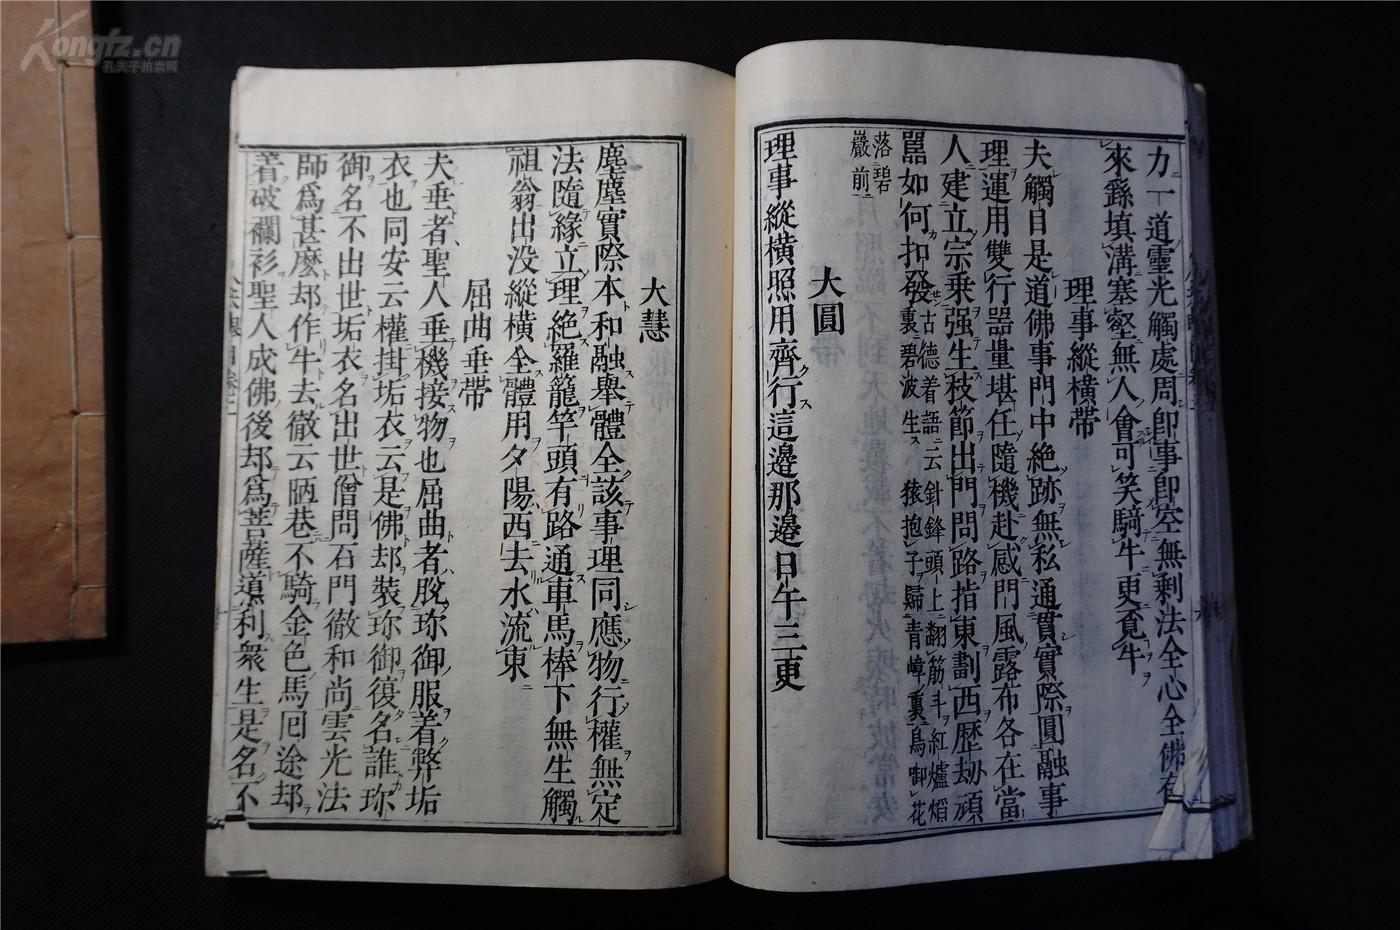 力一道靈光觸處周卽事卽空無剩法全心全佛有
來繇塡溝塞壑無人會可笑騎牛更覓牛
理事縱橫帶
夫觸目是道佛事門中絶跡無私通貫實際圓融事
理運用雙行器量堪任隨機赴感門風露布各在當
人建立宗乘强生枝節出門問路指東劃西歷劫頑
嚚如何扣發古德着語云針鋒頭上翻筋斗紅爐熖
裏碧波生猿抱子歸青嶂裏鳥啣花
落碧
巖前
大圓
理事縱橫照用齊行這邉那邉日午三更
大慧
塵塵實際本和融舉體全該事理同應物行權無定
法隨緣立理絶羅籠竿頭有路通車馬棒下無生觸
祖翁出没縱橫全體用夕陽西去水流東
屈曲垂帶
夫垂者聖人垂機接物也屈曲者脫珎御服着弊垢
衣也同安云權掛垢衣云是佛却裝珎御復名誰珎
御名不出世垢衣名出世僧問石門徹和尚雲光法
師爲甚麽却作牛去徹云陋巷不騎金色馬囘途却
着破襴衫聖人成佛後却爲菩薩導利衆生是名不
Kongfz.cn
孔夫子拍卖网